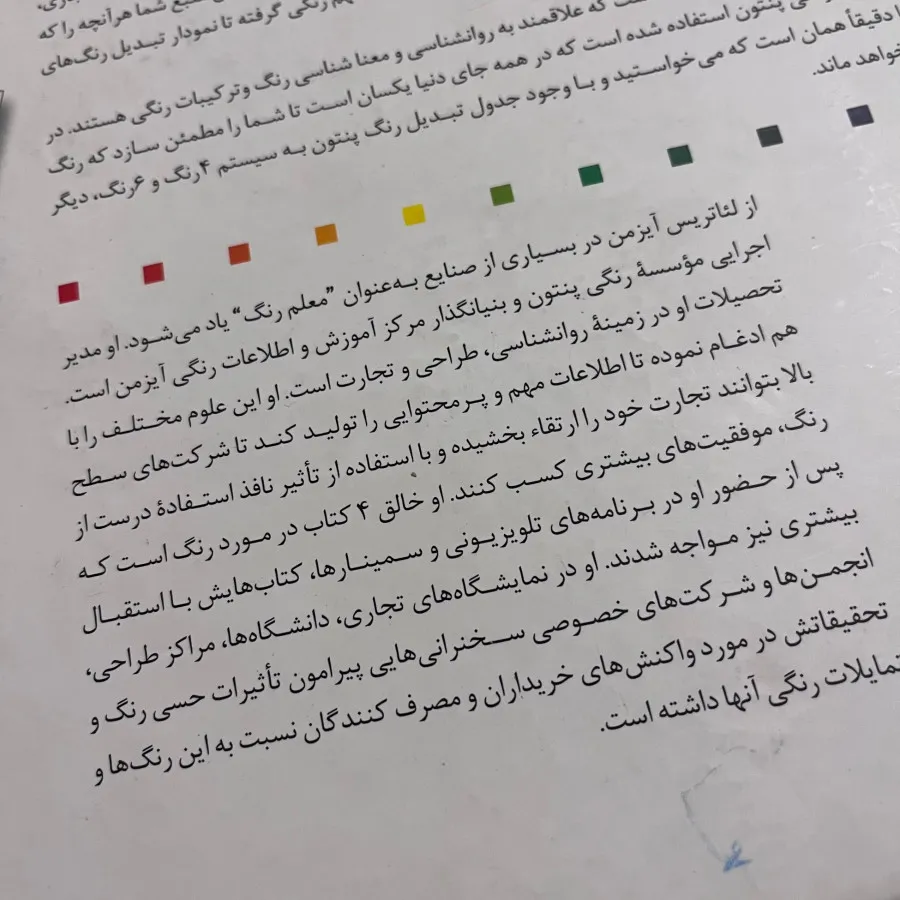 شما هرآنچه را که
رنگی گرفته تا نمودار تبدیل رنگ‌های
که علاقمند به روانشناسی و معنا شناسی رنگ وترکیبات رنگی هستند. در
پنتون استفاده شده است که در همه جای دنیا یکسان است تا شما را مطمئن سازد که رنگ
دقیقاً همان است که می‌خواستید و با وجود جدول تبدیل رنگ پنتون به سیستم ۴رنگ و ۶رنگ، دیگر
خواهد ماند.
از لئاتریس آیزمن در بسیاری از صنایع به‌عنوان ”معلم رنگ“ یاد می‌شود. او مدیر
اجرایی مؤسسهٔ رنگی پنتون و بنیانگذار مرکز آموزش و اطلاعات رنگی آیزمن است.
تحصیلات او در زمینهٔ روانشناسی، طراحی و تجارت است. او این علوم مختلف را با
هم ادغام نموده تا اطلاعات مهم و پرمحتوایی را تولید کند تا شرکت‌های سطح
بالا بتوانند تجارت خود را ارتقاء بخشیده و با استفاده از تأثیر نافذ استفادهٔ درست از
رنگ، موفقیت‌های بیشتری کسب کنند. او خالق ۴ کتاب در مورد رنگ است که
پس از حضور او در برنامه‌های تلویزیونی و سمینارها، کتاب‌هایش با استقبال
بیشتری نیز مواجه شدند. او در نمایشگاه‌های تجاری، دانشگاه‌ها، مراکز طراحی،
انجمن‌ها و شرکت‌های خصوصی سخنرانی‌هایی پیرامون تأثیرات حسی رنگ و
تحقیقاتش در مورد واکنش‌های خریداران و مصرف کنندگان نسبت به این رنگ‌ها و
تمایلات رنگی آنها داشته است.